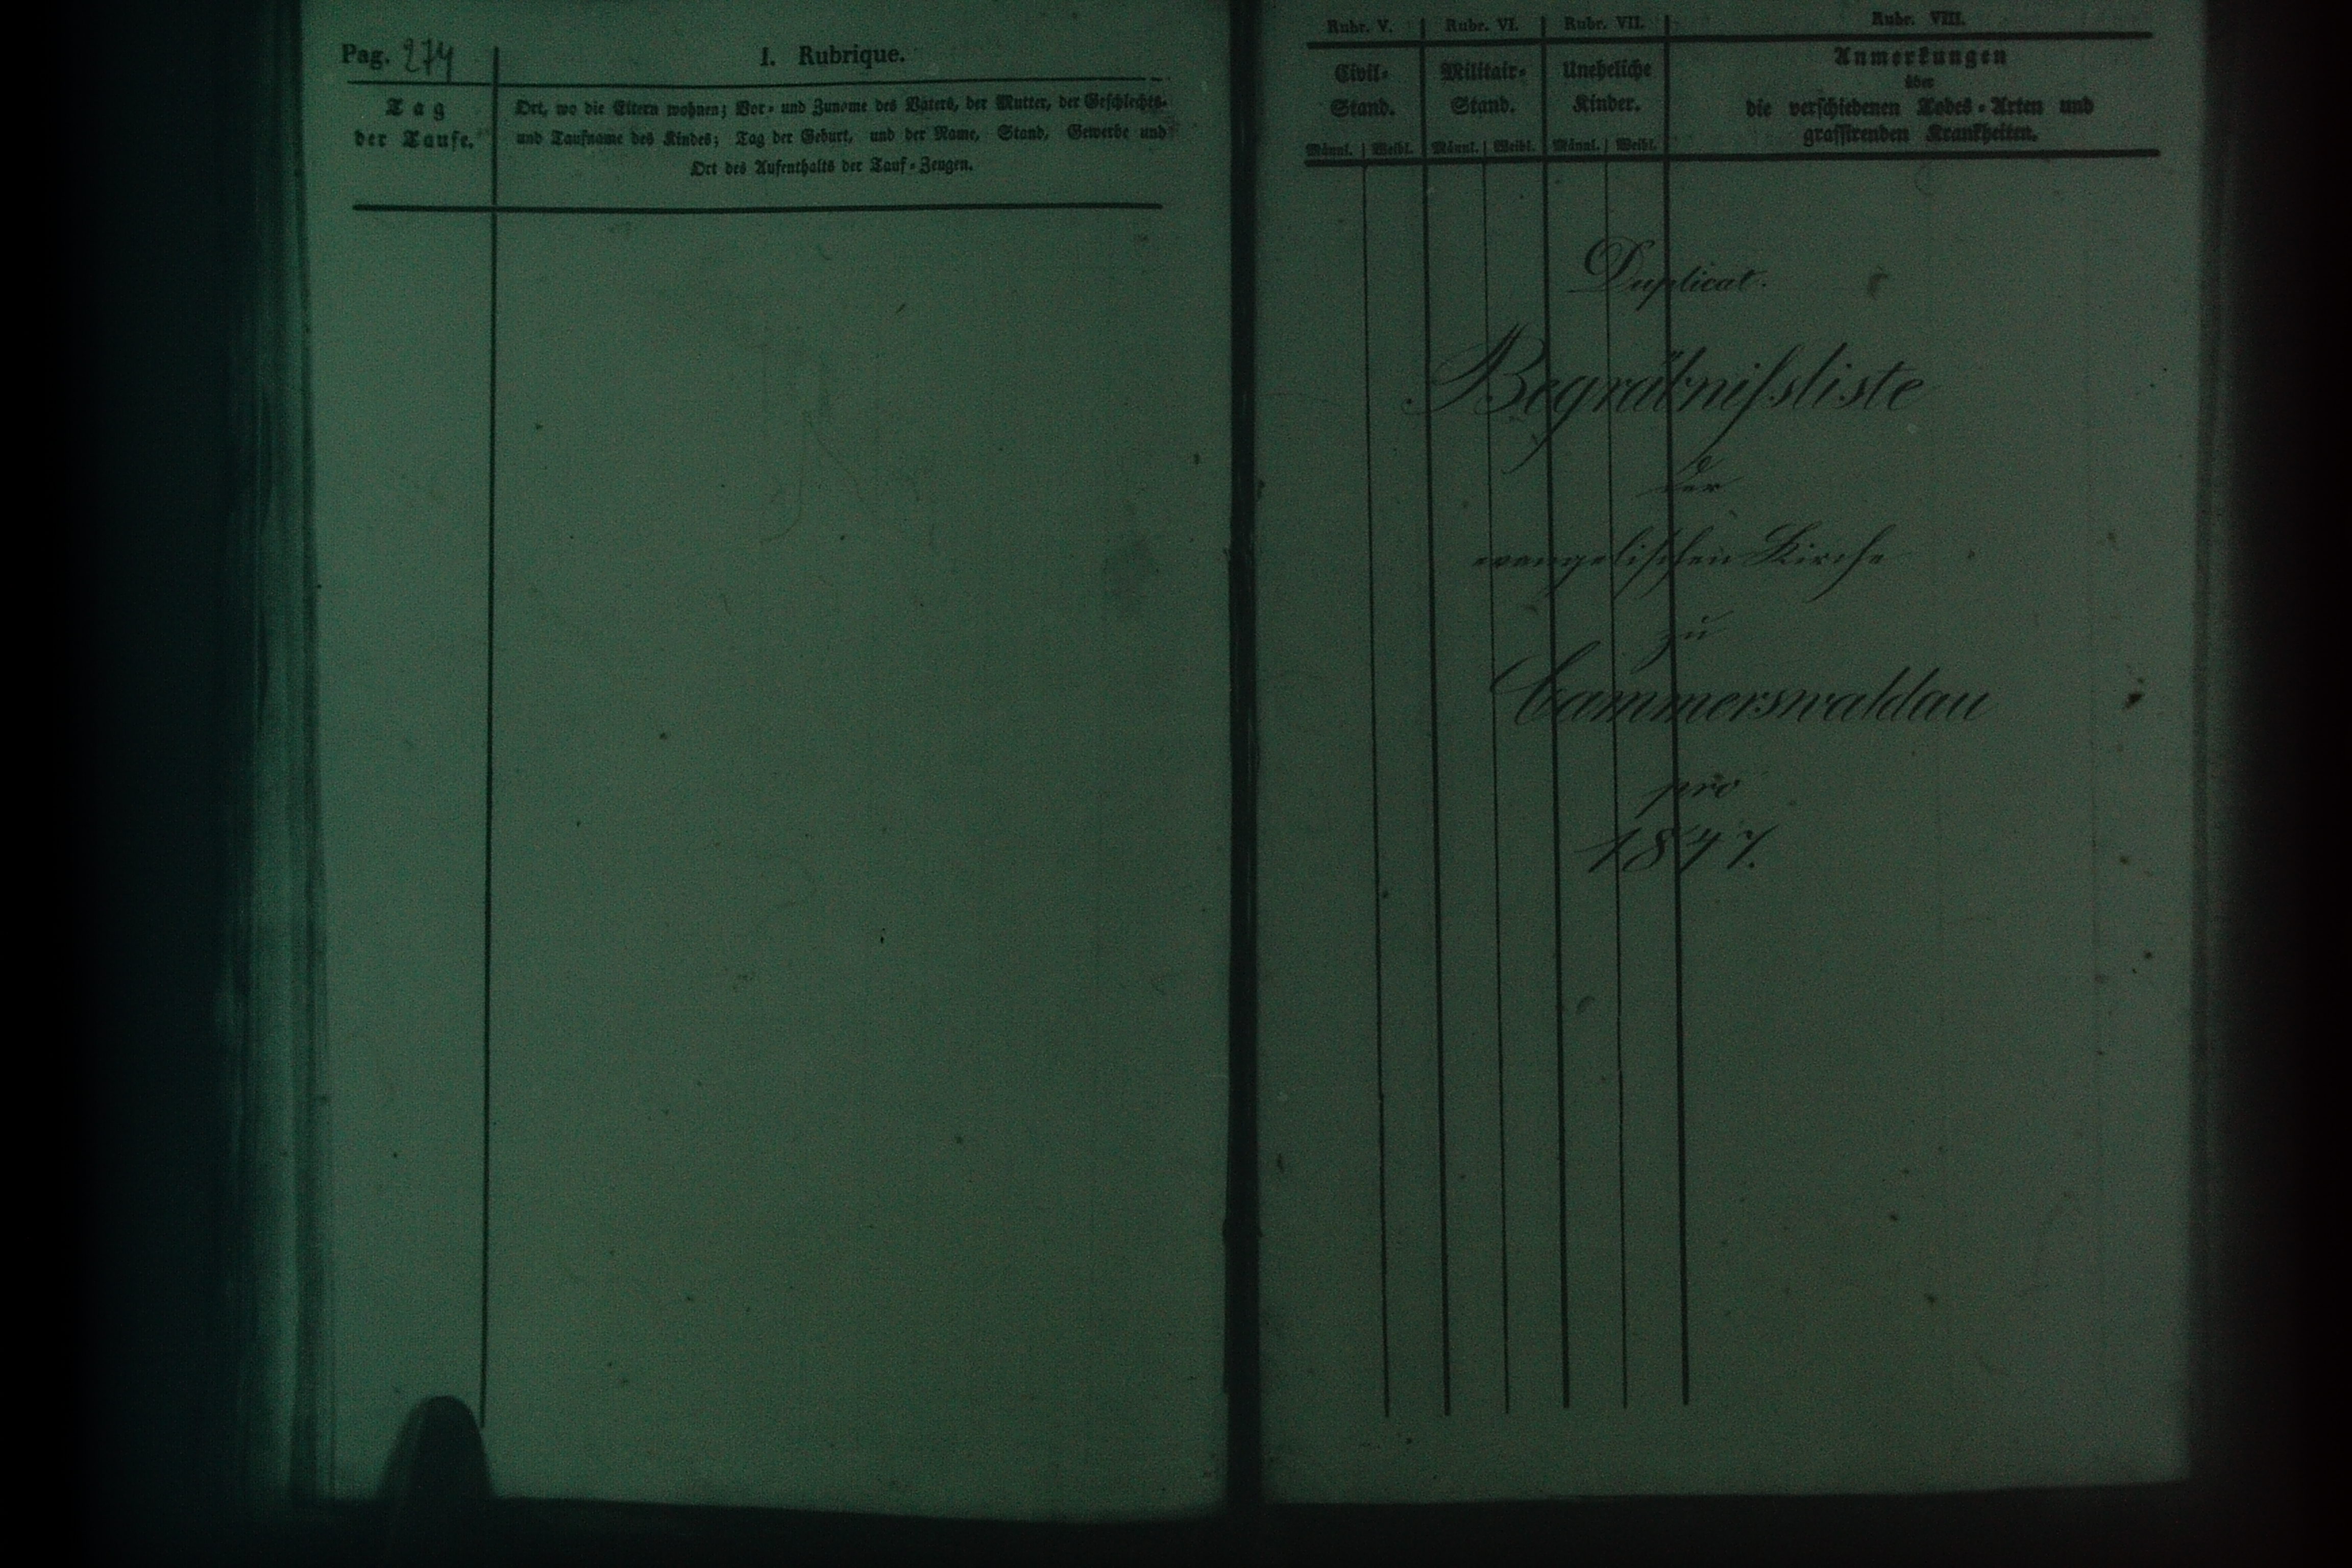 Pag. 274
I. Rubrique.
Tag
der Taufe.
Ort, wo die Eltern wohnen; Vor- und Zuname des Vaters, der Mutter, der Geschlechts-
und Taufname des Kindes; Tag der Geburt, und der Name, Stand, Gewerbe und
Ort des Aufenthalts der Tauf-Zeugen.
Rubr. V. Rubr. VI. Rubr. VII. Rubr. VIII.
Civil-
Stand.
Militair-
Stand.
Uneheliche
Kinder.
Anmerkungen
über
die verschiedenen Todes-Arten und
grassirenden Krankheiten.
Männl. Weibl. Männl. Weibl. Männl. Weibl.
Duplicat.
Begräbnißliste
der
evangelischen Kirche
zu
Cammerswaldau
pro
1847.